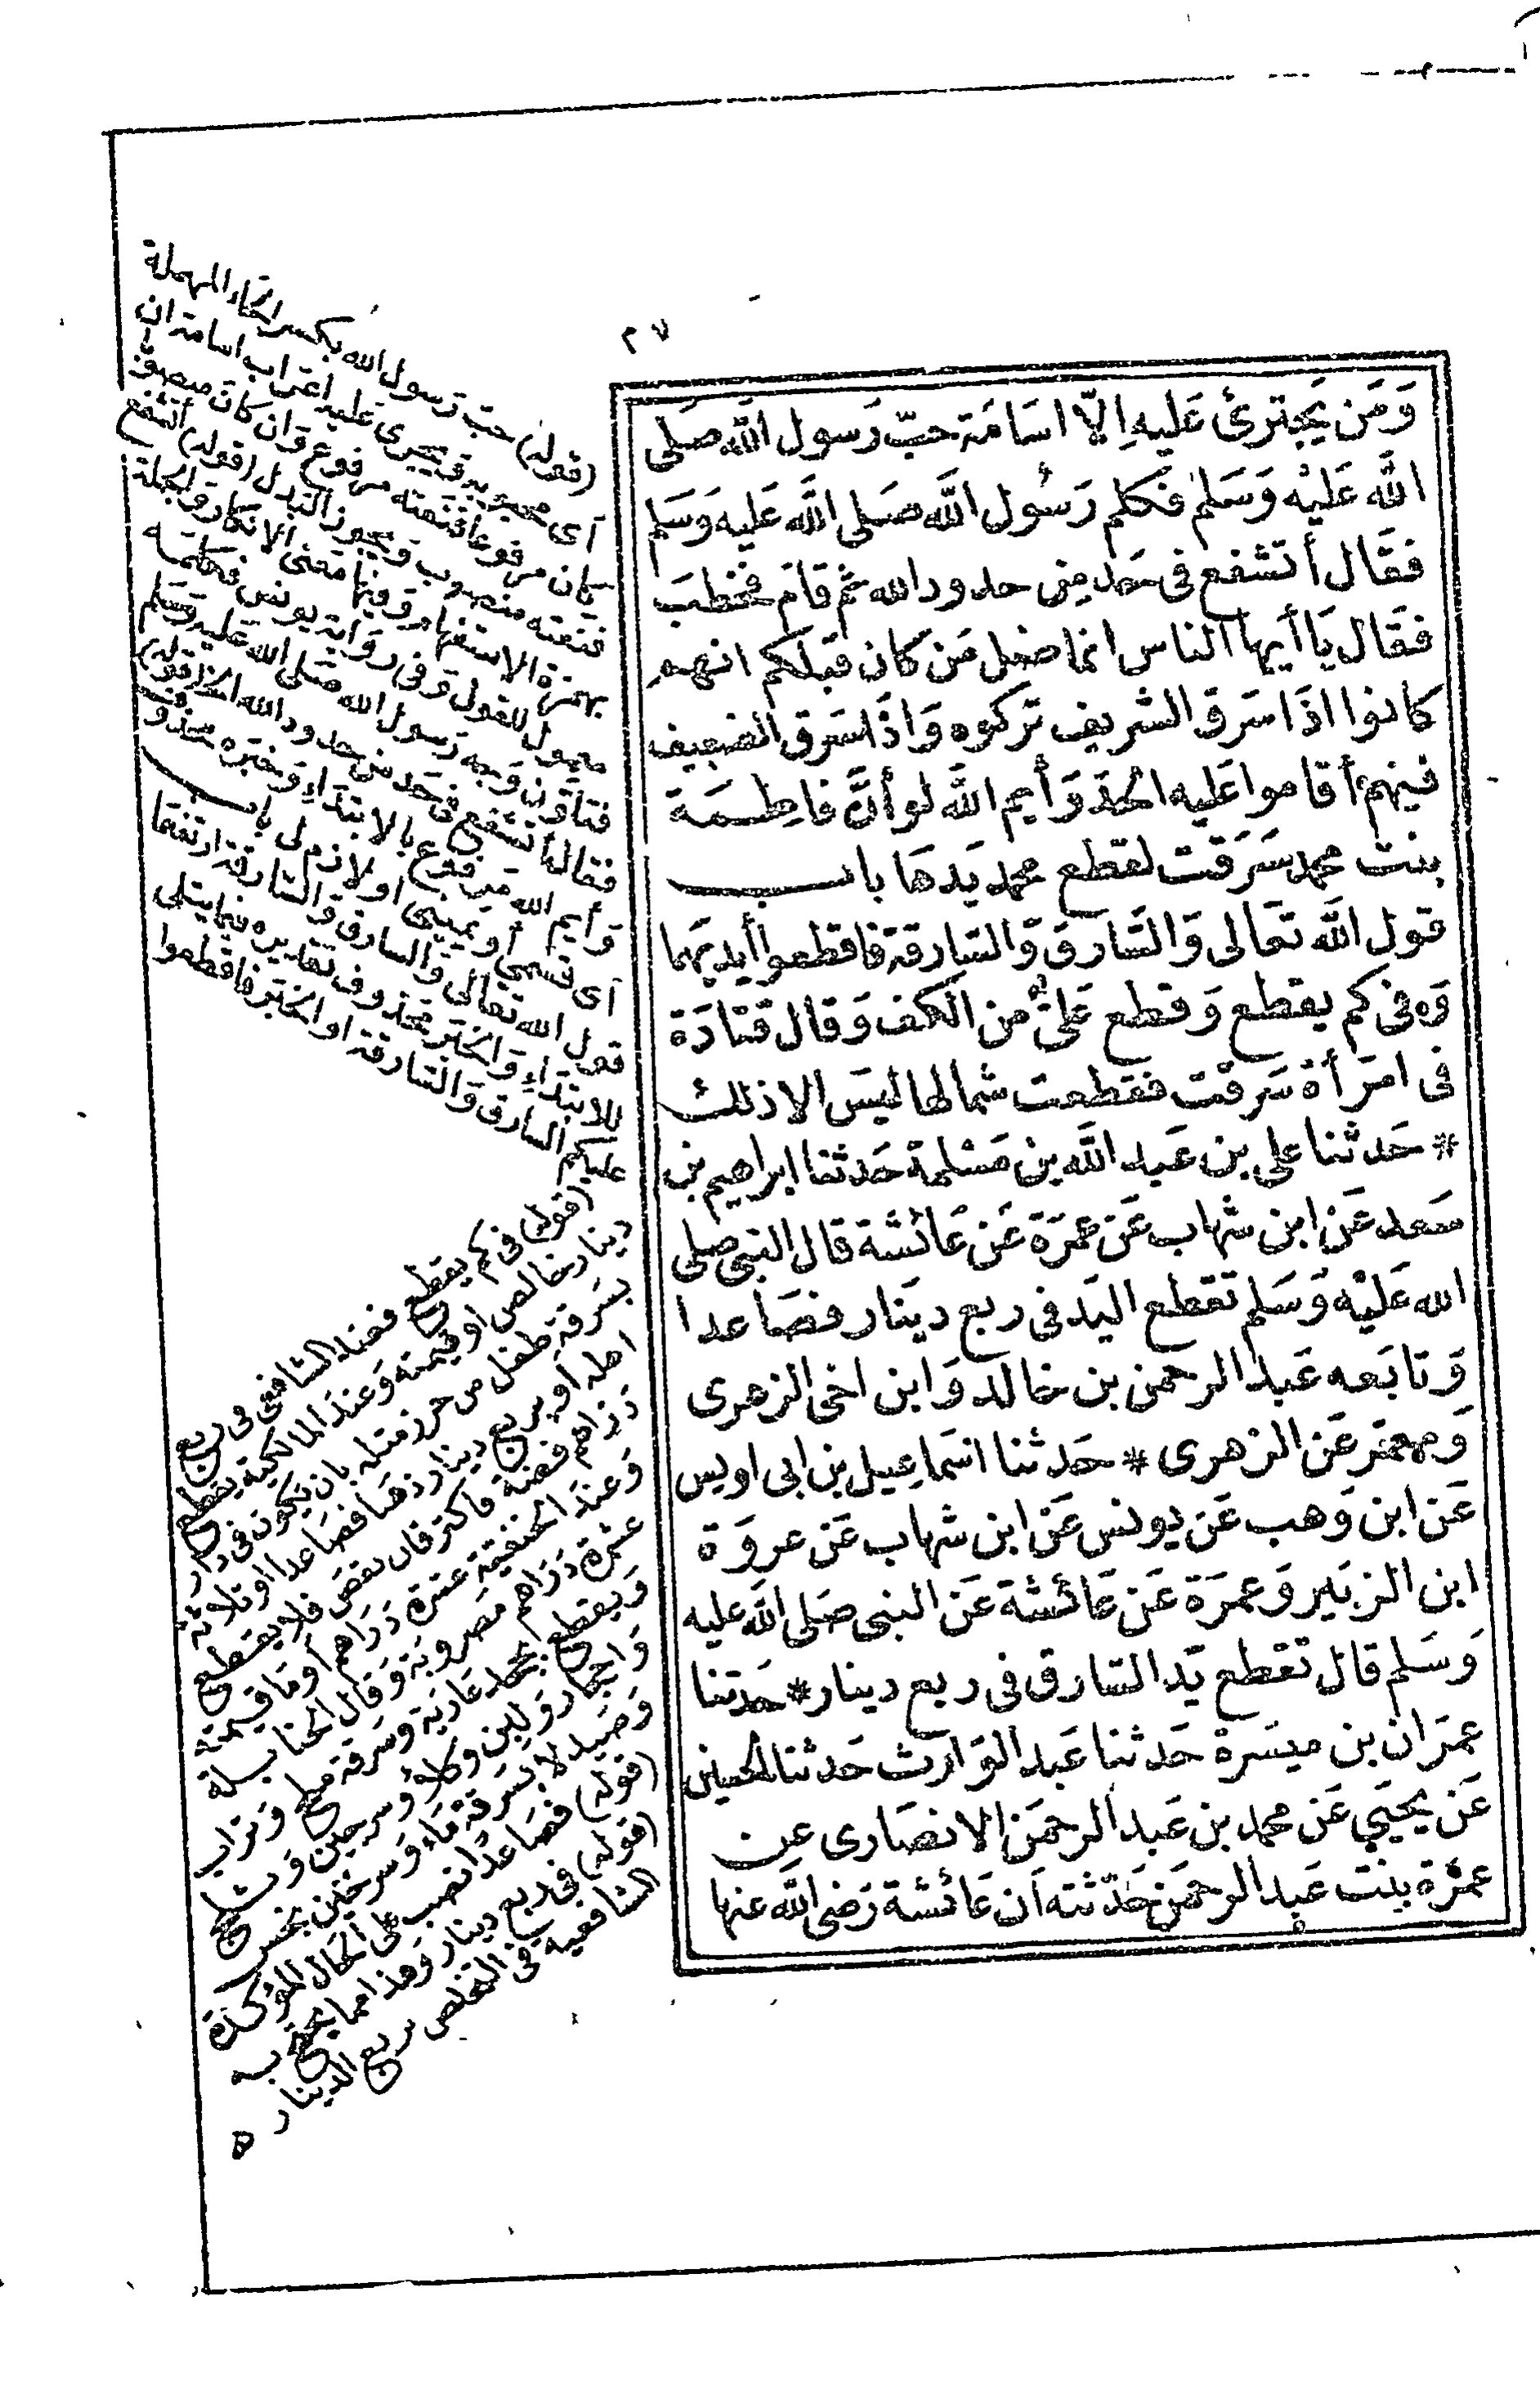 ٢٧
وَمَن يَجترئ عَليهِ اِلّا اسَامَة حبّ رَسول اللّه صَلى
اللَّه عَليْه وَسَلم فكلم رَسُول اللَّه صَلى اللَّه عَليه وَسَلم
فقَال أتشفع فى حَد مِن حدود الله ثم قامَ فخطبَ
فقَال يَا أيها الناس انما ضل مَن كان قبلكم انهم
كانوا اذَا سَرق الشريف تركوه وَاذَا سَرق الضعيف
فيهم أقاموا عَليه الحَدّ وَأيم اللَّه لو أنَّ فاطِمَة
بنت محمد سَرَقت لقطع محمد يَدهَا باب
قول اللَّه تعَالى وَالسَّارق وَالسَّارقة فاقطعوا أيديَهما
وَفى كم يقطع وَقطع عَلىٌّ من الكف وَقال قتادَة
فى امرَأة سَرقت فقطعت شمالها ليسَ الا ذلك
* حَدثنا على بن عَبد اللَّه بن مَسْلمة حَدثنا ابراهيم بن
سَعد عَن ابن شهاب عَن عمرَة عَن عَائشة قال النبى صلى
الله عَليْه وَسَلم تقطع اليَد فى ربع دينَار فصَاعدا
وَتابَعه عَبد الرحمن بن خالد وَابن اخى الزهرى
وَمعمَر عَن الزهرى * حَدثنا اسمَاعِيل بن ابى اويس
عَن ابن وَهب عَن يونس عَن ابن شهاب عَن عروَة
ابن الزبَير وَعمرَة عَن عَائشة عَن النبى صَلى اللَّه عليه
وَسَلم قال تقطع يَد السَّارق فى ربع دينار * حَدثنا
عمرَان بن ميسَرة حَدثنا عَبد الوَارث حَدثنا الحسين
عَن يحيَى عَن محمد بن عَبد الرحمَن الانصَارى عن
عمرَة بنت عَبد الرحمَن حَدّثته أن عَائشة رَضى اللَّه عنها
(قوله) حبّ رَسول الله بكسر الحَاء المهملة
أى محبوبه
كان مرفوعا فنعته مرفوع وَان كان منصوبا
فنعته منصوب وَيجوز البَدل (قوله) أتشفع
بهمزة الاستفهام وَفيها معنى الانكار وَالجملة
معمول للقول وَفى روَاية يونس فكلمه
فتلوّن وَجه رَسول الله صَلى الله عَليه وَسَلم
فقال أتشفع فى حَد من حدود الله الخ (قوله)
وَأيم الله مَرفوع بالابتدَاء وَخبَره محذوف
أى قسمى أو يمينى او لازم لى باب
قول الله تعَالى وَالسارق وَالسَّارقة ارتفعَا
للابتدَاء وَالخَبَر محَذوف تقديره فيما يتلى
عليكم السارق وَالسَّارقة او الخبَر فاقطعوا
(قوله) فى كم يقطع فعند الشافعى فى ربع
دينار خالص او قيمته وَعند المالكية يقطع
بسَرقة طفل من حرز مثله بان يَكون فى دَار
اهله أو بربع دينار ذهَبا فصَاعدا او ثلاثة
دَرَاهم فضة فاكثر فان نقصَ فلا يقطع
وَعندَ الحنفية عشرة دَرَاهم أو مَا قيمَته
عشرة دَرَاهم مضروبَة وَقال الحنابلة
وَيقطع بجحد عَاريَة وسَرقة ملح وَترَاب
وَاحجار وَلبن وكلاء وسرجين وَثلج
وَصَيد لا بسَرقة مَاء وَسرجين نجس
(قوله) فصَاعدًا نصب على الحَال المؤكدة
(قوله) فى ربع دينار وَهذا مما يحتج به
الشافعية فى ربع الدينار